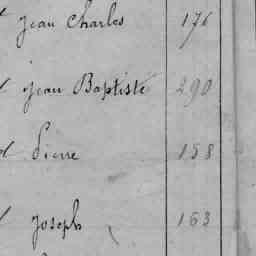 Jean Charles 176
Jean Baptiste 290
Pierre 158
Joseph 163